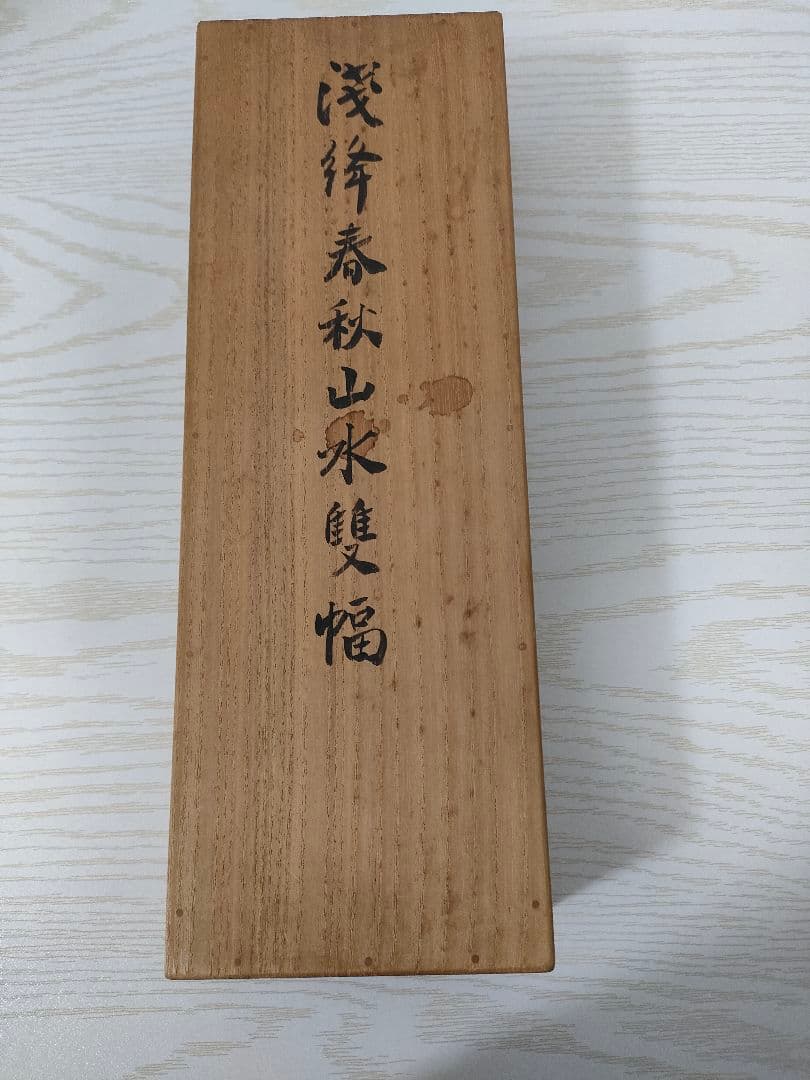 淺絳春秋山水雙幅